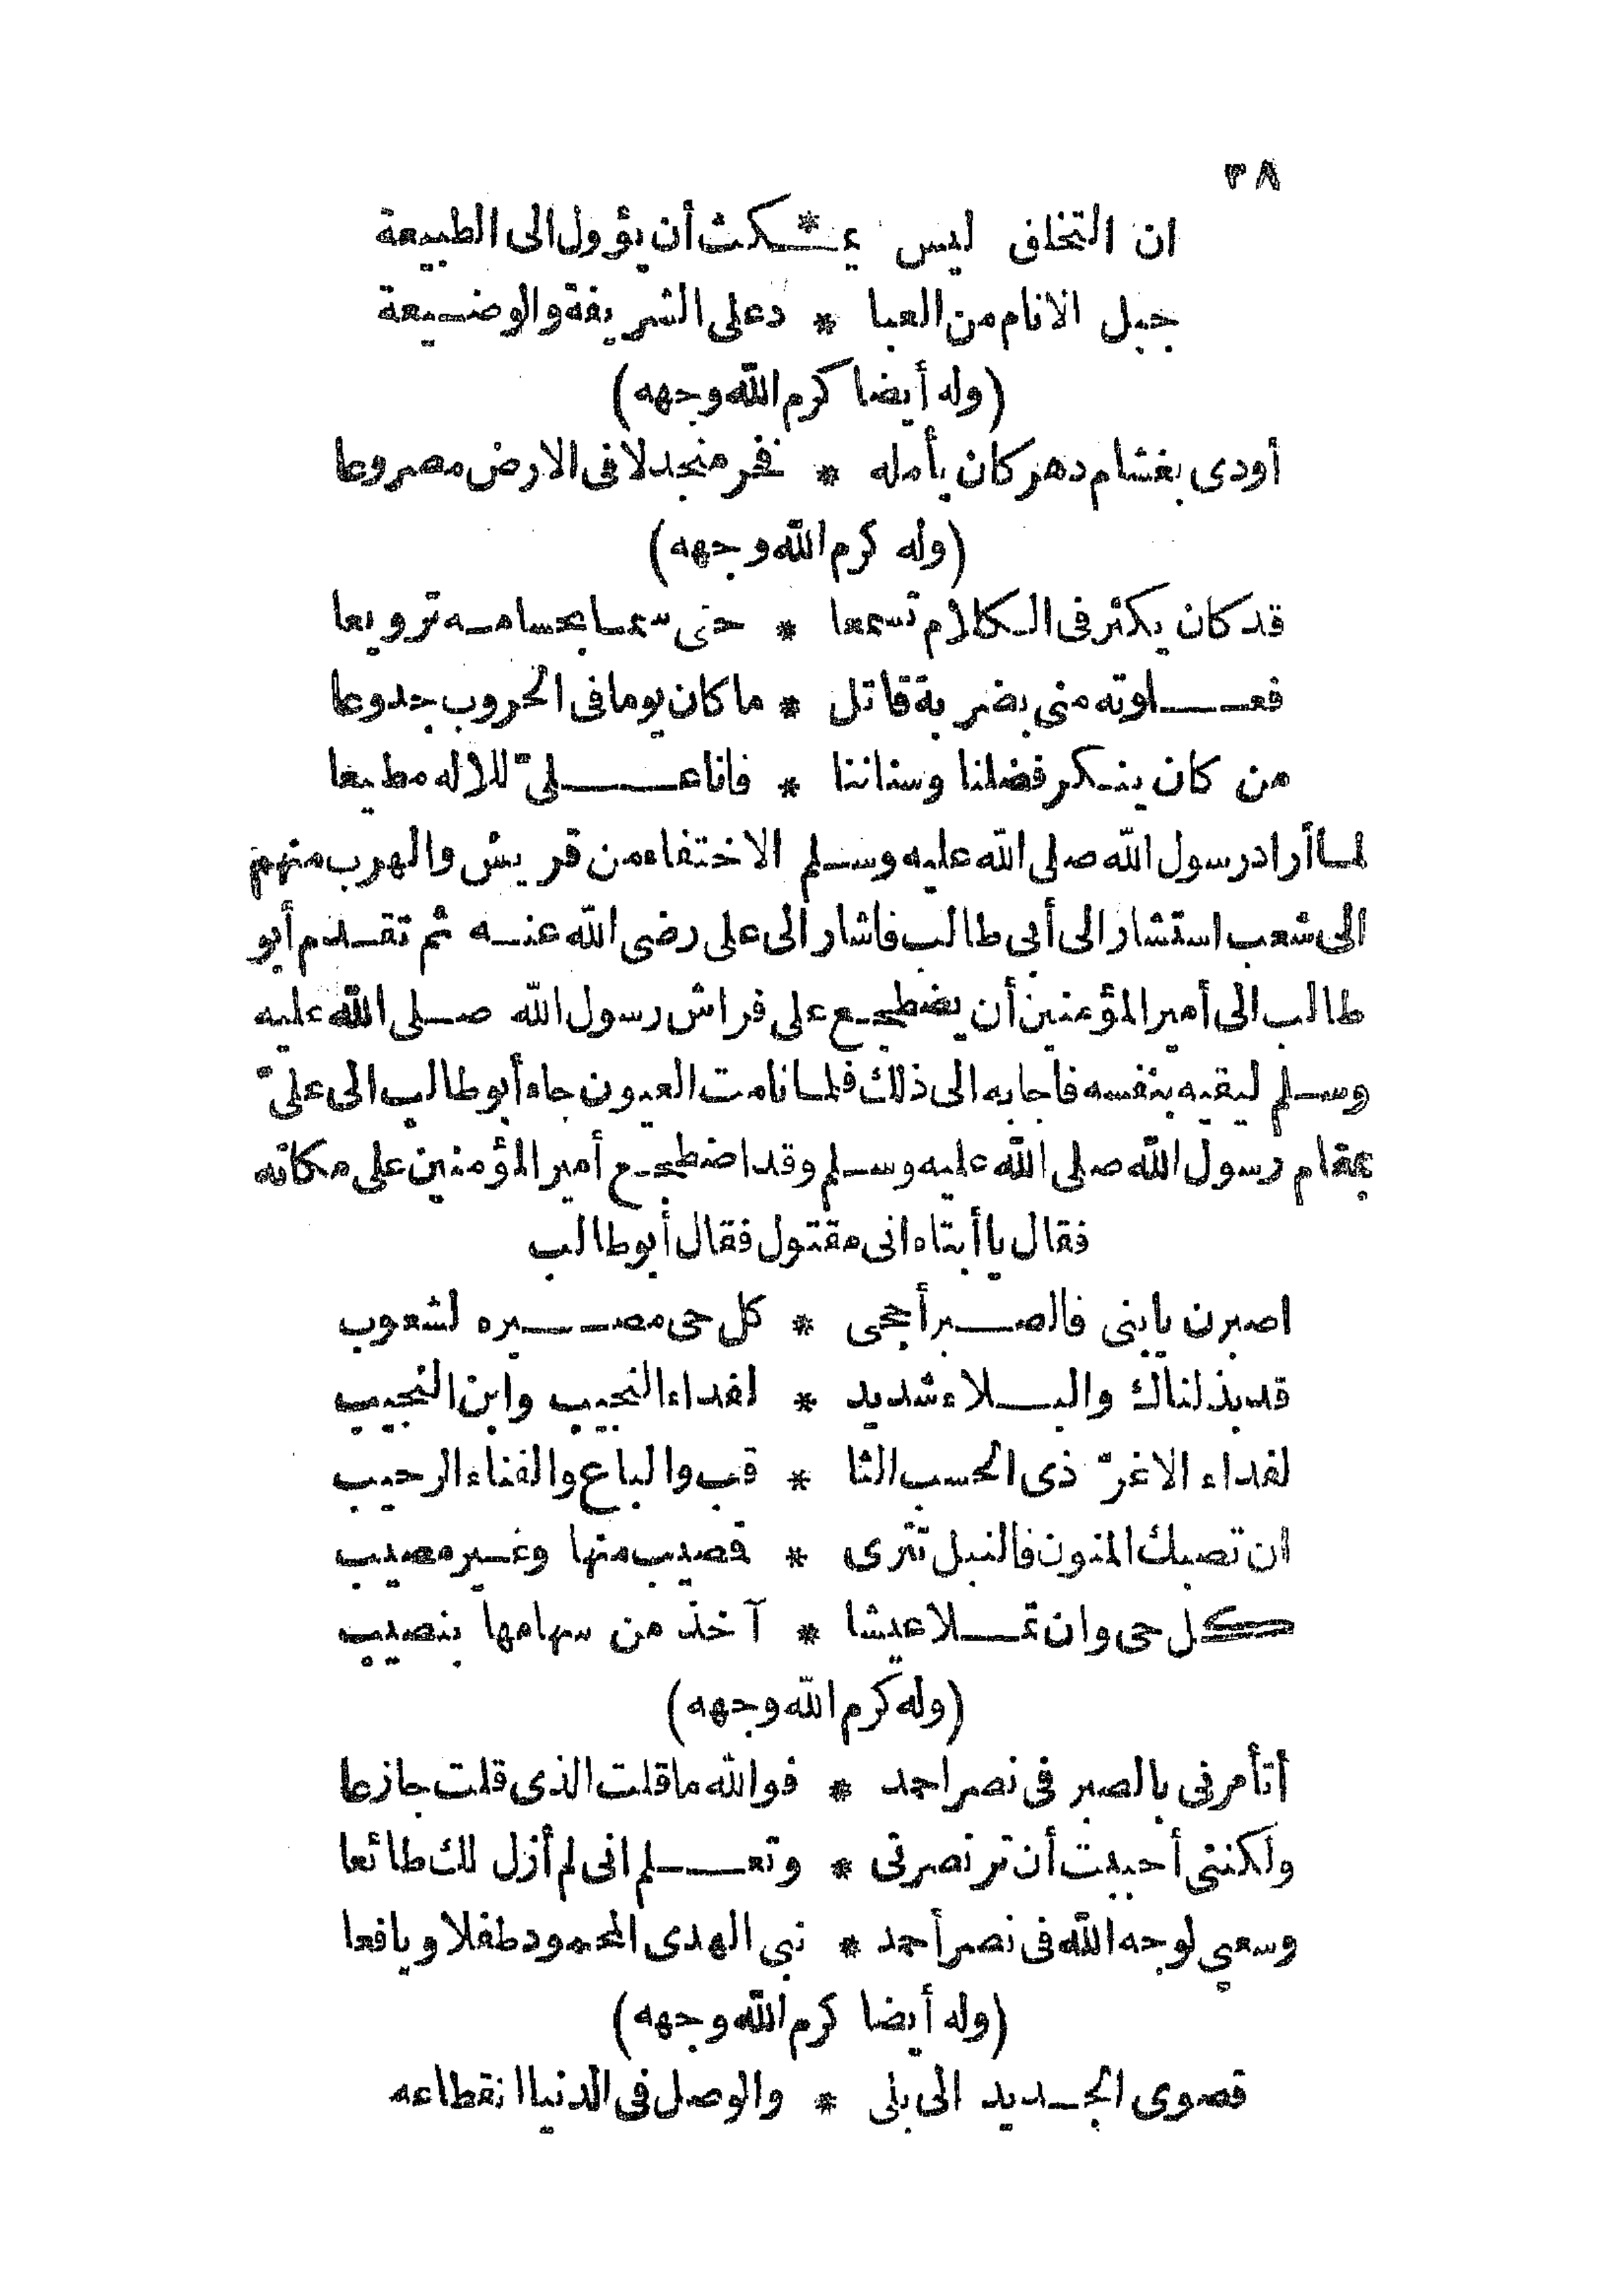 ٣٨
ان التخلق ليس يمـ * ـكث أن يؤول الى الطبيعة
جبل الانام من العبا * دعلى الشريفة والوضيعة
(وله أيضا كرم الله وجهه)
أودى بغشام دهر كان يأمله * فخر منجدلا فى الارض مصروعا
(وله كرم الله وجهه)
قد كان يكثر فى الكلام تسمعا * حتى سما بحسامه ترويعا
فعلوته منى بضربة قاتل * ما كان يوما فى الحروب جدوعا
من كان ينكر فضلنا وسناننا * فانا علىّ للاله مطيعا
لما أراد رسول الله صلى الله عليه وسلم الاختفاء من قريش والهرب منهم
الى شعب استشار الى أبى طالب فاشار الى على رضى الله عنه ثم تقدم أبو
طالب الى أمير المؤمنين أن يضطجع على فراش رسول الله صلى الله عليه
وسلم ليقيه بنفسه فأجابه الى ذلك فلما نامت العيون جاء أبو طالب الى علىّ
بمقام رسول الله صلى الله عليه وسلم وقد اضطجع أمير المؤمنين على مكانه
فقال يا أبتاه انى مقتول فقال أبو طالب
اصبرن يا بنى فالصبر أحجى * كل حى مصيره لشعوب
قد بذلناك والبلاء شديد * لفداء النجيب وابن النجيب
لفداء الاغرّ ذى الحسب الثا * قب والباع والفناء الرحيب
ان تصبك المنون فالنبل تترى * فصيب منها وغير مصيب
كل حى وان تملا عيشا * آخذ من سهامها بنصيب
(وله كرم الله وجهه)
أتأمرنى بالصبر فى نصر احمد * فوالله ما قلت الذى قلت جازعا
ولكننى أحببت أن تر نصرتى * وتعلم انى لم أزل لك طائعا
وسعيى لوجه الله فى نصر أحمد * نبى الهدى المحمود طفلا ويافعا
(وله أيضا كرم الله وجهه)
قصوى الجديد الى بلى * والوصل فى الدنيا انقطاعه